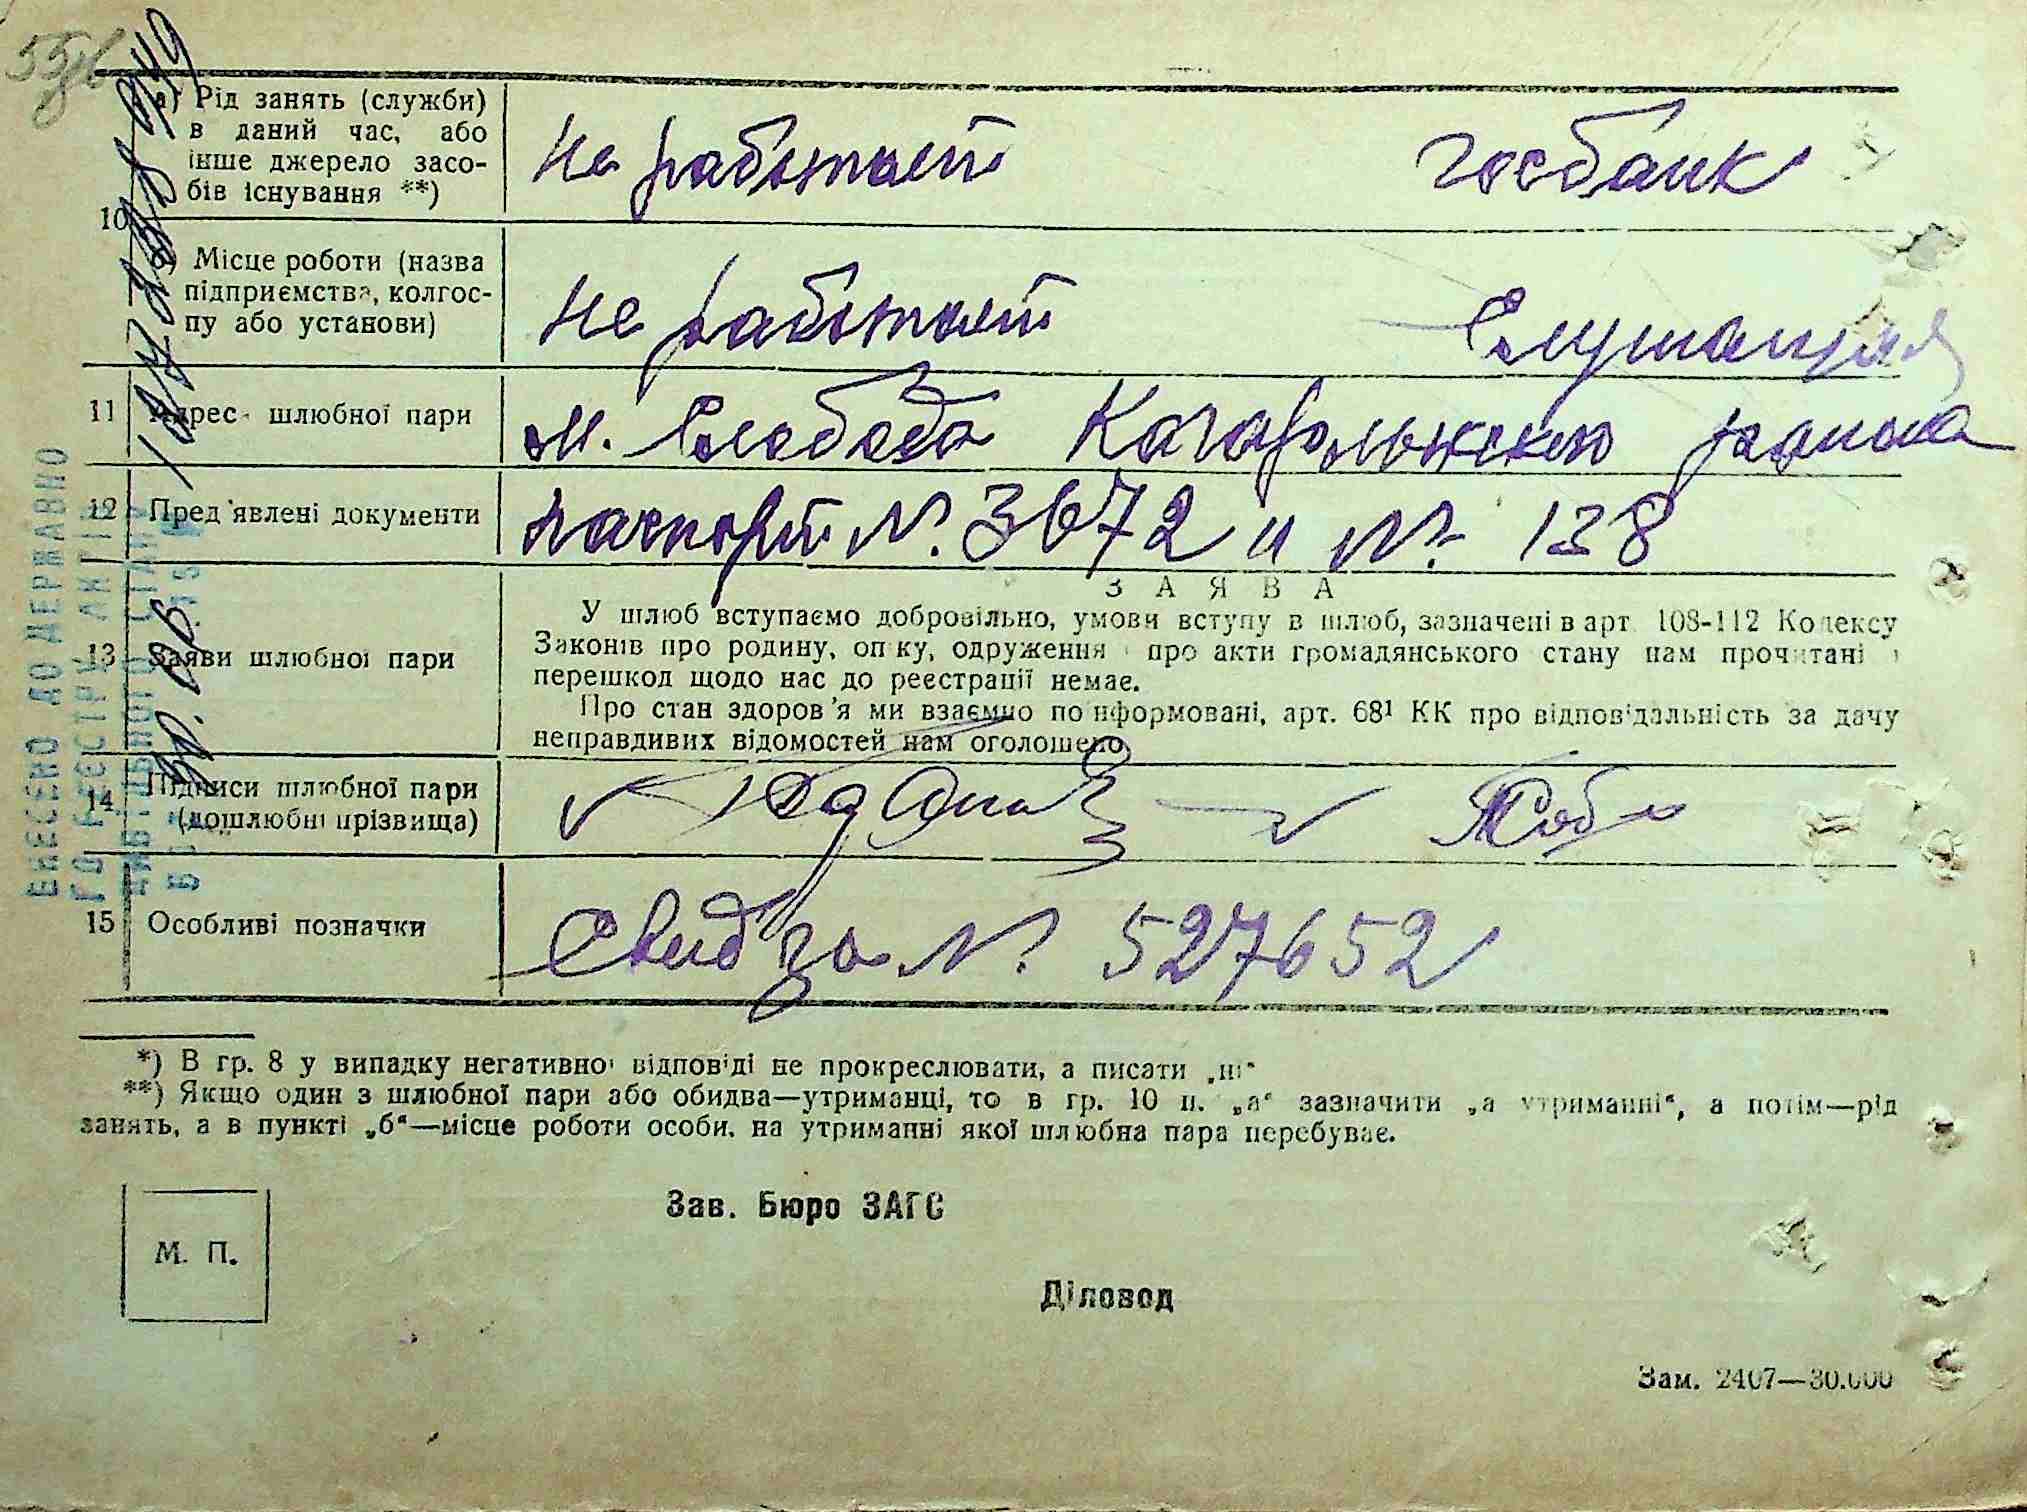 а) Рід занять (служби)
в даний час, або
інше джерело засо-
бів існування **)
Не работает
госбанк
10
б) Місце роботи (назва
підприємства, колгос-
пу або установи)
не работает
Служащая
11 Адрес шлюбної пари
м. Слобода Кагарлыкского района
12 Пред'явлені документи
паспорт №. 3672 и №. 138
ЗАЯВА
13 Заяви шлюбної пари
У шлюб вступаємо добровільно, умови вступу в шлюб, зазначені в арт. 108-112 Кодексу
Законів про родину, опіку, одруження і про акти громадянського стану нам прочитані і
перешкод щодо нас до реєстрації немає.
Про стан здоров'я ми взаємно поінформовані, арт. 68¹ КК про відповідальність за дачу
неправдивих відомостей нам оголошено
14 Підписи шлюбної пари
(дошлюбні прізвища)
15 Особливі позначки
Свид за №. 527652
*) В гр. 8 у випадку негативної відповіді не прокреслювати, а писати „ні“
**) Якщо один з шлюбної пари або обидва—утриманці, то в гр. 10 п. „а“ зазначити „а утриманні“, а потім—рід
занять, а в пункті „б“—місце роботи особи, на утриманні якої шлюбна пара перебуває.
Зав. Бюро ЗАГС
М. П.
Діловод
Зам. 2407—30.000
ВНЕСЕНО ДО ДЕРЖАВНО
ГО РЕЄСТРУ АКТІВ
ЦИВІЛЬНОГО СТАНУ